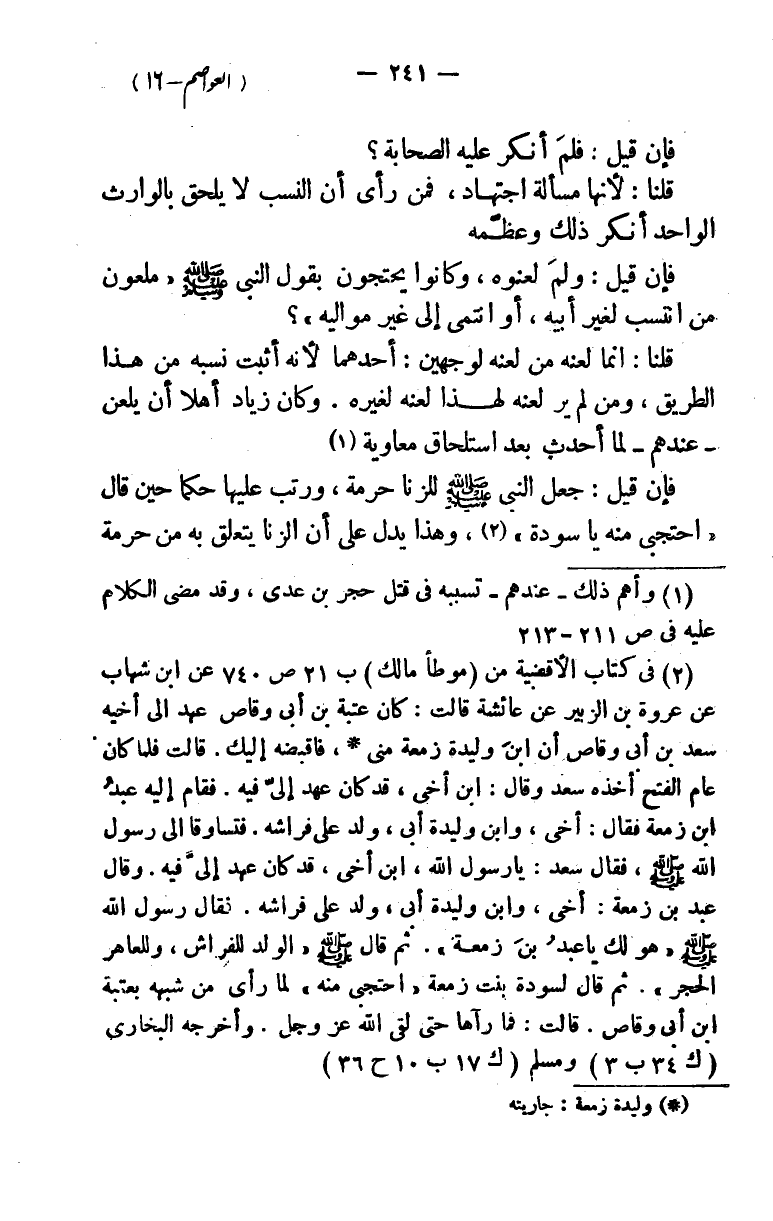 — ٢٤١ —
( العواصم – ١٦ )
فإن قيل : فلمَ أنكر عليه الصحابة ؟
قلنا : لأنها مسألة اجتهاد ، فمن رأى أن النسب لا يلحق بالوارث
الواحد أنكر ذلك وعظّمه
فإن قيل : ولمَ لعنوه ، وكانوا يحتجون بقول النبي ﷺ « ملعون
من انتسب لغير أبيه ، أو انتمى إلى غير مواليه » ؟
قلنا : انما لعنه من لعنه لوجهين : أحدهما لأنه أثبت نسبه من هذا
الطريق ، ومن لم ير لعنه لهذا لعنه لغيره . وكان زياد أهلا أن يلعن
ـ عندهم ـ لما أحدث بعد استلحاق معاوية (١)
فإن قيل : جعل النبي ﷺ للزنا حرمة ، ورتب عليها حكما حين قال
« احتجبي منه يا سودة » (٢) ، وهذا يدل على أن الزنا يتعلق به من حرمة
(١) وأهم ذلك ـ عندهم ـ تسببه فى قتل حجر بن عدى ، وقد مضى الكلام
عليه فى ص ٢١١ – ٢١٣
(٢) فى كتاب الأقضية من (موطأ مالك) ب ٢١ ص ٧٤٠ عن ابن شهاب
عن عروة بن الزبير عن عائشة قالت : كان عتبة بن أبى وقاص عهد الى أخيه
سعد بن أبى وقاص أن ابنَ وليدة زمعة منى * ، فاقبضه إليك . قالت فلما كان
عام الفتح أخذه سعد وقال : ابن أخى ، قد كان عهد إلىّ فيه . فقام إليه عبدُ
ابن زمعة فقال : أخى ، وابن وليدة أبى ، ولد على فراشه . فتساوقا الى رسول
الله ﷺ ، فقال سعد : يارسول الله ، ابن أخى ، قد كان عهد إلىّ فيه . وقال
عبد بن زمعة : أخى ، وابن وليدة أبى ، ولد على فراشه . نقال رسول الله
ﷺ « هو لك ياعبدُ بنَ زمعـة » . ثم قال ﷺ « الولد للفراش ، وللعاهر
الحجر » . ثم قال لسودة بنت زمعة « احتجبى منه » لما رأى من شبهه بعتبة
ابن أبى وقاص . قالت : فما رآها حتى لقى الله عز وجل . وأخرجه البخارى
( ك ٣٤ ب ٣ ) ومسلم ( ك ١٧ ب ١٠ ح ٣٦ )
(*) وليدة زمعة : جاريته